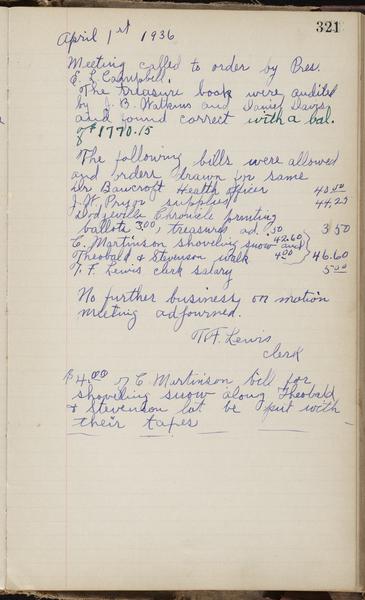 321
April 1st 1936
Meeting called to order by Pres.
E. L. Campbell.
The treasure book were audited
by J. B. Watkins and David Davis
and found correct with a bal.
of $1770.15
The following bills were allowed
and orders drawn for same
Dr Bancroft Health officer 40.00
J. W. Pryor supplies 44.23
Dodgeville Chronicle printing
ballots 3.00, treasures ad. .50 3.50
C. Martinson shoveling snow 42.60 and
Theobald & Stevenson walk 4.00 } 46.60
T. F. Lewis clerk salary 5.00
No further business, on motion
meeting adjourned.
T. F. Lewis
clerk
$4.00 of C. Martinson bill for
shoveling snow along Theobald
& Stevenson lot be put with
their taxes